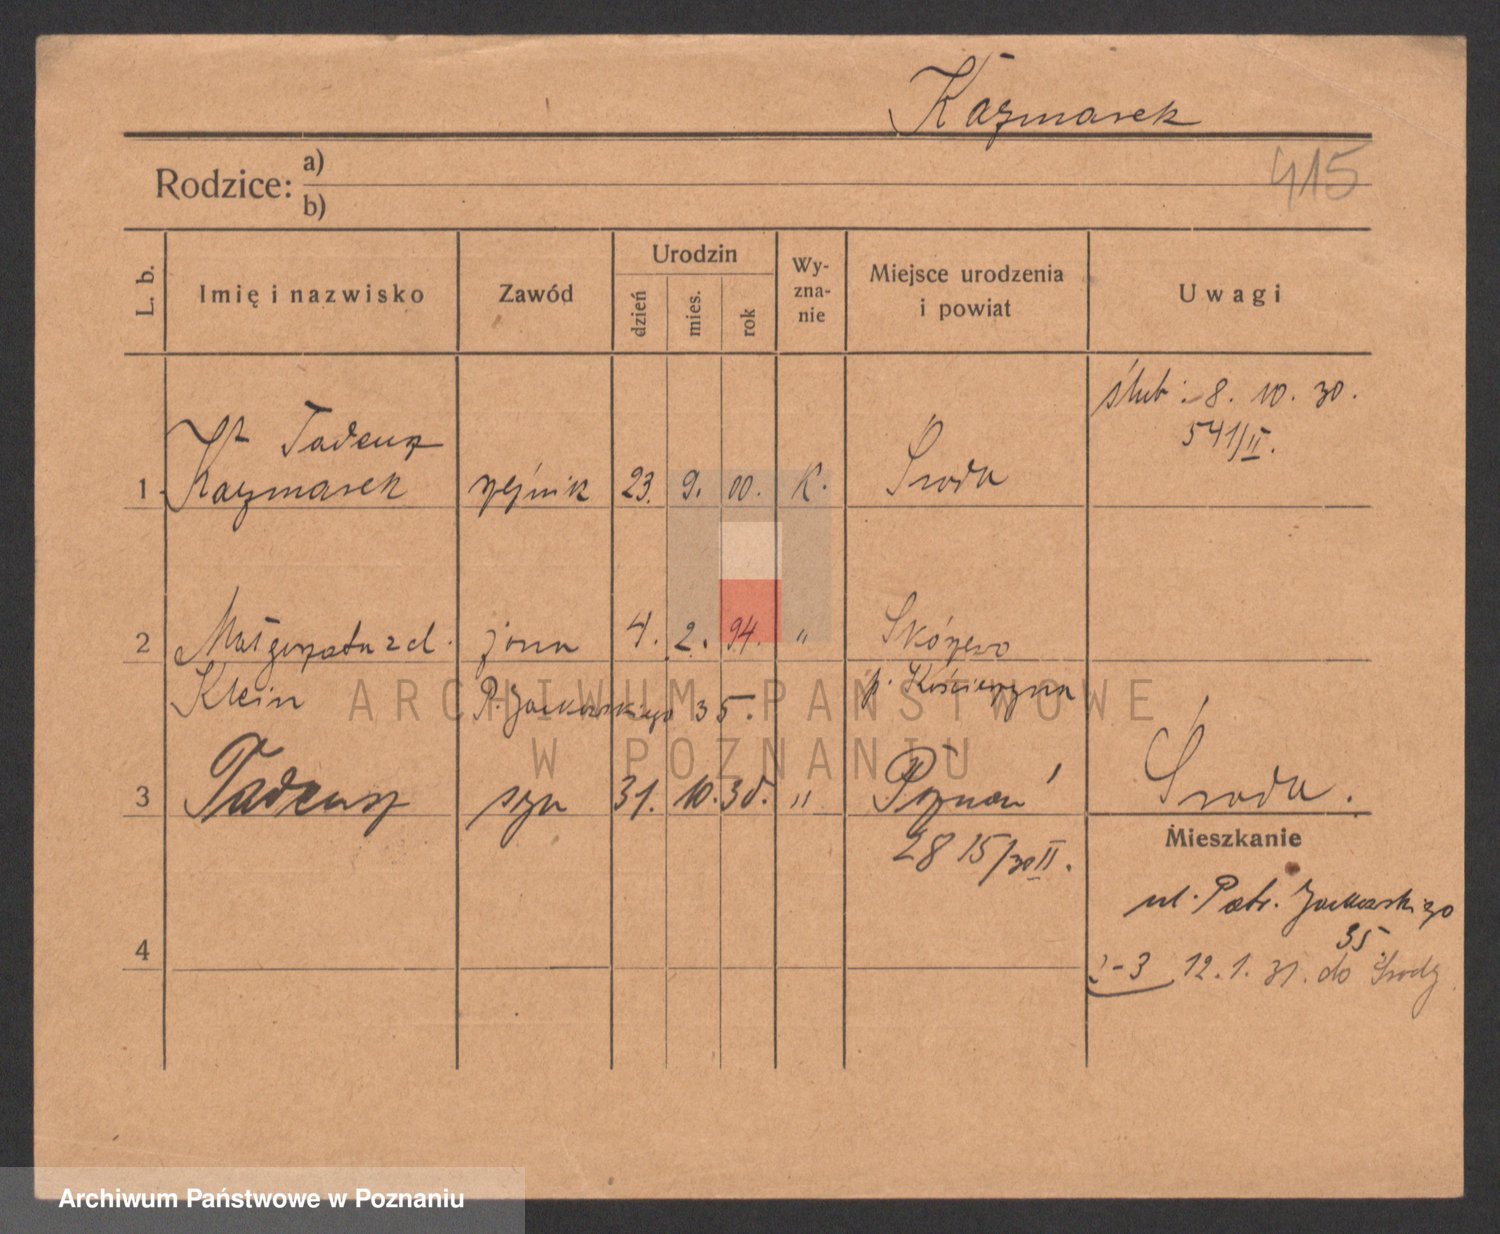 Kaźmarek
415
Rodzice: a)
b)
L. b.
Imię i nazwisko
Zawód
Urodzin
dzień
mies.
rok
Wy-
zna-
nie
Miejsce urodzenia
i powiat
Uwagi
ślub: 8. 10. 30.
541/II.
1 Tadeusz
Kaźmarek
23. 9. 00. K. Środa
2 Małgorzata z d. żona 4. 2. 94. "
Klein P. Jackowskiego 35. p. Kościerzyna
3 Tadeusz syn 31. 10. 30. " Poznań Środa.
28 15/30 II.
Mieszkanie
ul. Patr. Jackowskiego
35
2-3 12. 1. 31. do Środy
4
ARCHIWUM PAŃSTWOWE
W POZNANIU
Archiwum Państwowe w Poznaniu